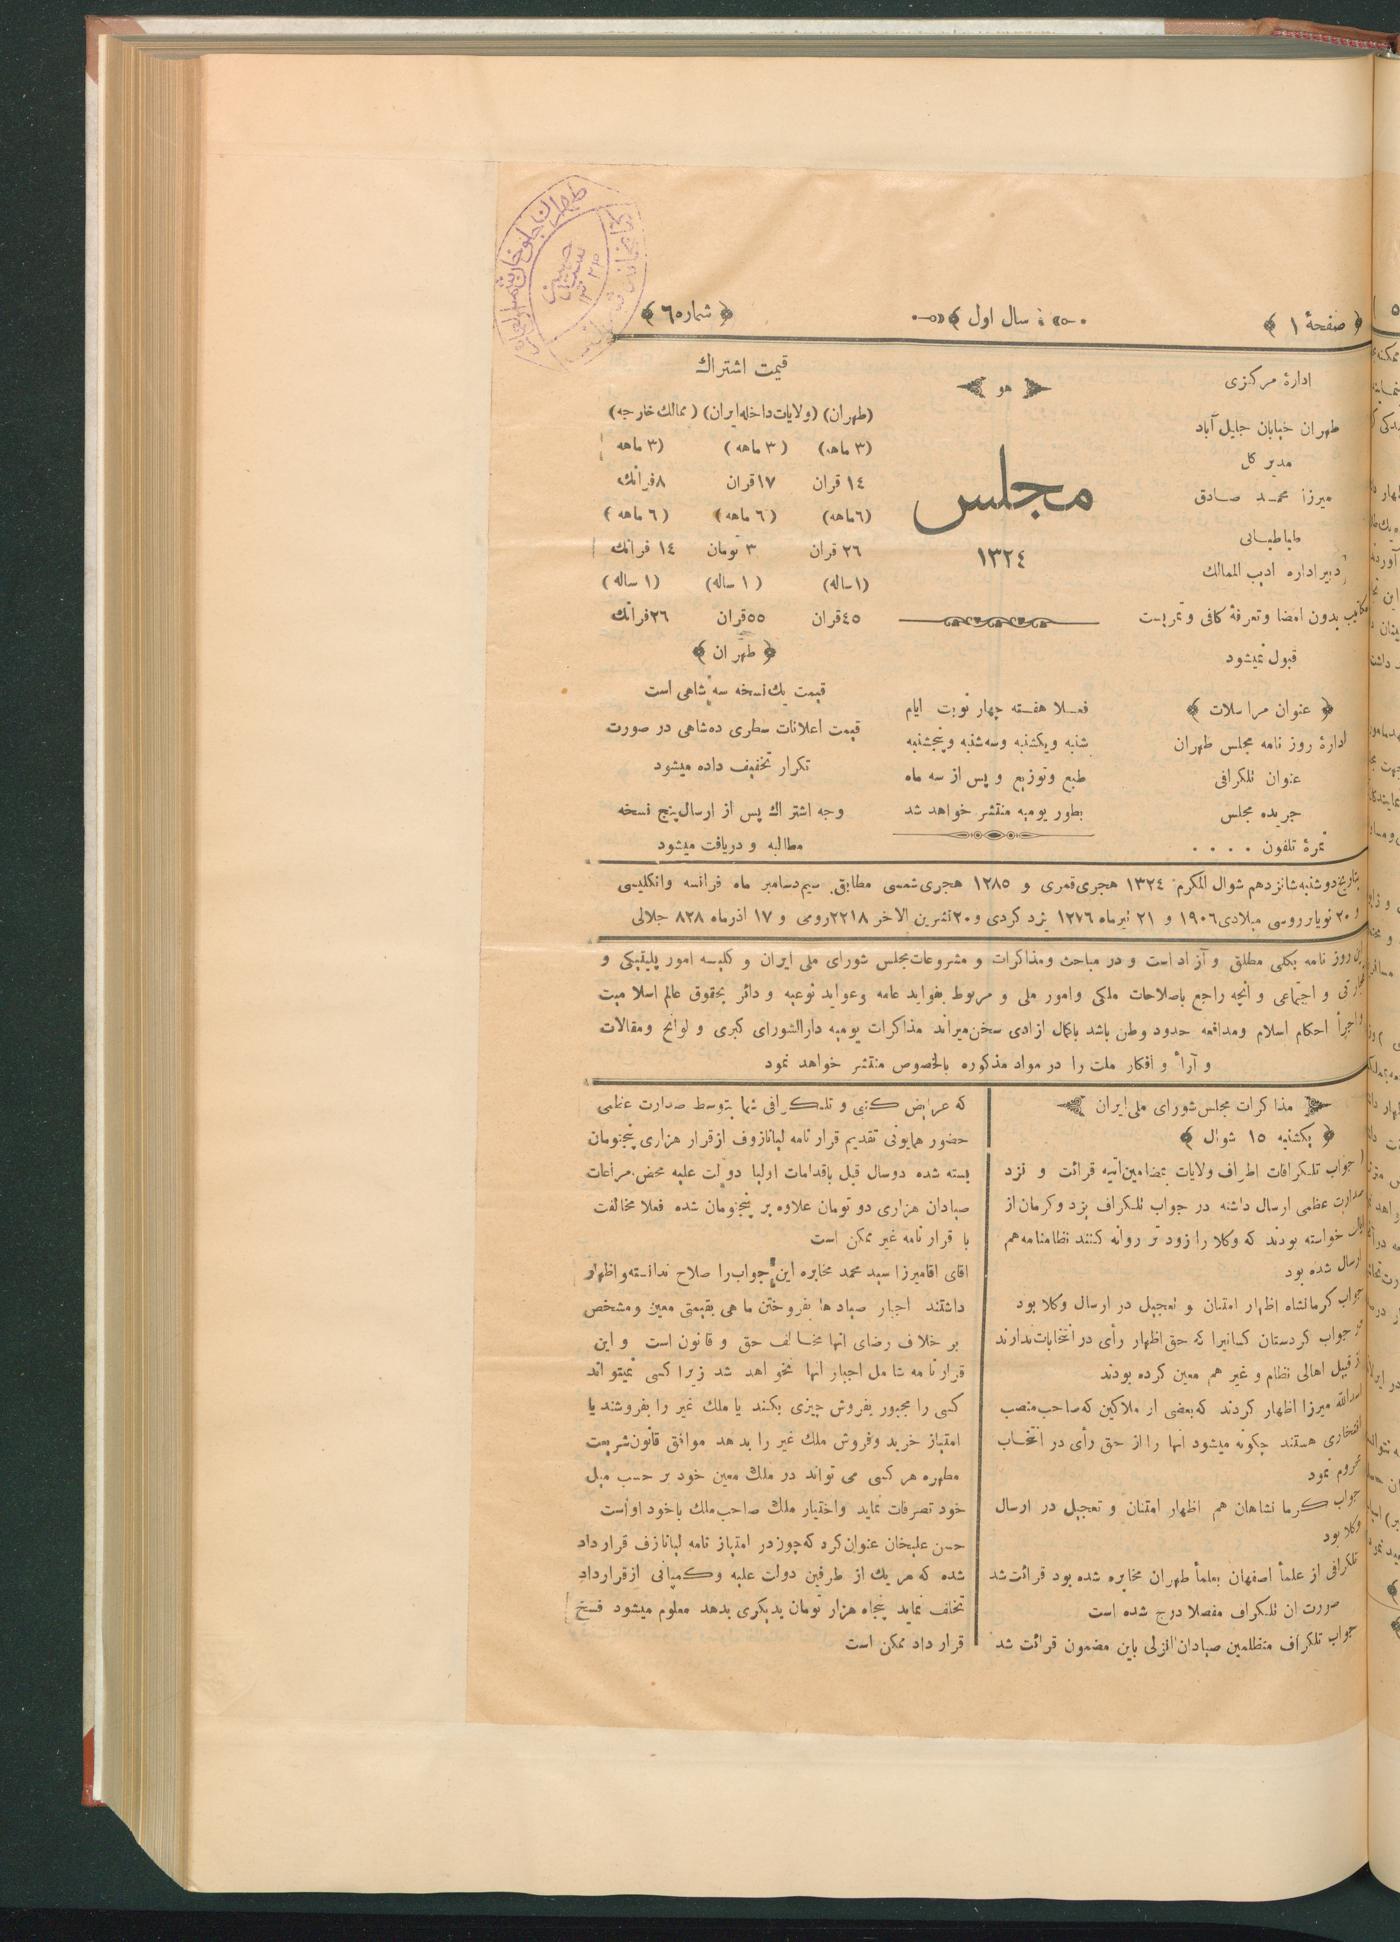 صفحهٔ ۱
سال اول
شماره ٦
ادارهٔ مرکزی
طهران خیابان جلیل آباد
مدیر کل
میرزا محمد صادق
طباطبائی
دبیر اداره ادیب الممالک
مکاتیب بدون امضا و تعرفهٔ کافی و تمربست
قبول نمیشود
عنوان مراسلات
ادارهٔ روز نامه مجلس طهران
عنوان تلگرافی
جریده مجلس
نمرهٔ تلفون ۰ ۰ ۰ ۰
هو
مجلس
۱۳۲٤
فعلا هفته چهار نوبت ایام
شنبه و یکشنبه و سه‌شنبه و پنجشنبه
طبع و توزیع و پس از سه ماه
بطور یومیه منتشر خواهد شد
قیمت اشتراک
(طهران) (ولایات داخله ایران) (ممالک خارجه)
(۳ ماهه) (۳ ماهه) (۳ ماهه)
۱٤ قران ۱۷ قران ۸ فرانک
(٦ ماهه) (٦ ماهه) (٦ ماهه)
۲٦ قران ۳ تومان ۱٤ فرانک
(۱ ساله) (۱ ساله) (۱ ساله)
٤٥ قران ٥٥ قران ۲٦ فرانک
طهران
قیمت یک نسخه سه شاهی است
قیمت اعلانات سطری ده شاهی در صورت
تکرار تخفیف داده میشود
وجه اشتراک پس از ارسال پنج نسخه
مطالبه و دریافت میشود
بتاریخ دوشنبه شانزدهم شوال المکرم ۱۳۲٤ هجری قمری و ۱۲۸٥ هجری شمسی مطابق سیم دسامبر ماه فرانسه وانکلیسی
و ۲۰ نویابر روسی میلادی ۱۹۰٦ و ۲۱ تیرماه ۱۲۷٦ یزد کردی و ۲۰ تشرین الاخر ۲۲۱۸ رومی و ۱۷ اذرماه ۸۲۸ جلالی
این روز نامه بکلی مطلق و آزاد است و در مباحث ومذاکرات و مشروعات مجلس شورای ملی ایران و کلیسه امور پلیتیکی و
تجارتی و اجتماعی و انچه راجع باصلاحات ملکی وامور ملی و مربوط بفواید عامه وعواید نوعیه و دائر بحقوق عالم اسلامیت
و اجرأ احکام اسلام ومدافعه حدود وطن باشد باکمال ازادی سخن میراند مذاکرات یومیه دارالشورای کبری و لوایح ومقالات
و آرأ و افکار ملت را در مواد مذکوره بالخصوص منتشر خواهد نمود
مذاکرات مجلس شورای ملی ایران
یکشنبه ۱٥ شوال
جواب تلکرافات اطراف ولایات بمضامین اتیه قرائت و نزد
صدارت عظمی ارسال داشته در جواب تلکراف یزد وکرمان از
خواسته بودند که وکلا را زود تر روانه کنند نظامنامه هم
ارسال شده بود
جواب کرمانشاه اظهار امتنان و تعجیل در ارسال وکلا بود
در جواب کردستان کسانیرا که حق اظهار رأی در انتخابات ندارند
از قبیل اهالی نظام و غیر هم معین کرده بودند
اسدالله میرزا اظهار کردند که بعضی از ملاکین که صاحب منصب
افتخاری هستند چکونه میشود انها را از حق رأی در انتخاب
محروم نمود
جواب کرما نشاهان هم اظهار امتنان و تعجیل در ارسال
وکلا بود
تلکرافی از علمأ اصفهان بعلمأ طهران مخابره شده بود قرائت شد
صورت ان تلکراف مفصلا درج شده است
جواب تلکراف متظلمین صیادان انزلی باین مضمون قرائت شد
که عرایض کتبی و تلکرافی شما بتوسط صدارت عظمی
حضور همایونی تقدیم قرار نامه لیانازوف ازقرار هزاری پنجتومان
بسته شده دوسال قبل باقدامات اولیا دولت علیه محض مراعات
صیادان هزاری دو تومان علاوه بر پنجتومان شده فعلا مخالفت
با قرار نامه غیر ممکن است
اقای اقامیرزا سید محمد مخابره این جواب را صلاح ندانسته و اظهار
داشتند اجبار صیاد ها بفروختن ماهی بقیمتی معین ومشخص
بر خلاف رضای انها مخالف حق و قانون است و این
قرار نامه شامل اجبار انها نخواهد شد زیرا کسی نمیتواند
کسی را مجبور بفروش چیزی بکند یا ملک غیر را بفروشند یا
امتیاز خرید وفروش ملک غیر را بدهد موافق قانون شریعت
مطهره هر کسی می تواند در ملک معین خود بر حسب میل
خود تصرفات نماید واختیار ملک صاحب ملک باخود اواست
حسن علیخان عنوان کرد که چون در امتیاز نامه لیانازف قرارداد
شده که هر یک از طرفین دولت علیه وکمپانی ازقرارداد
تخلف نماید پنجاه هزار تومان بدیکری بدهد معلوم میشود فسخ
قرار داد ممکن است